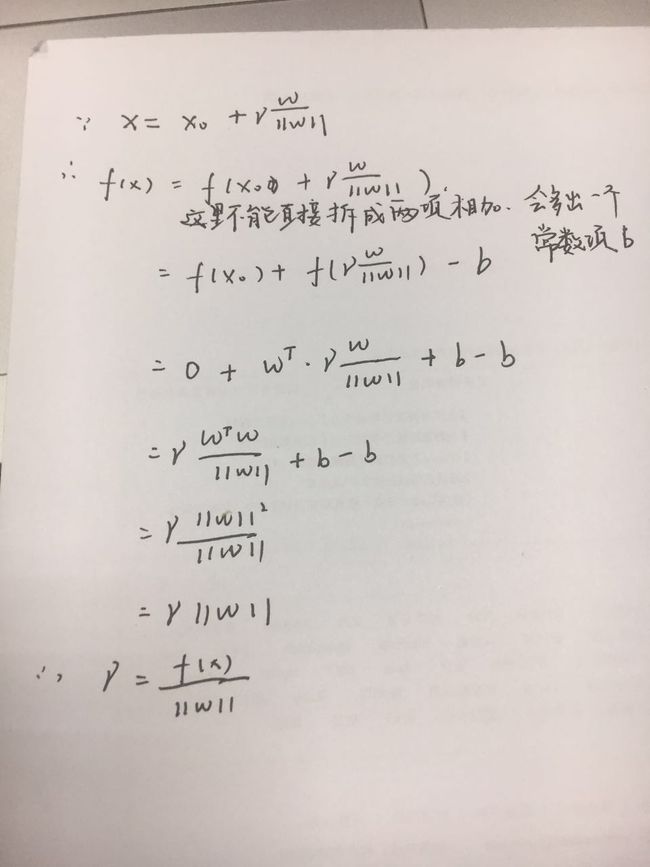 ∵ x = x₀ + γ w/||w||
∴ f(x) = f(x₀ + γ w/||w||).
这里不能直接拆成两项相加. 会多出一个
常数项 b
= f(x₀) + f(γ w/||w||) - b
= 0 + wᵀ · γ w/||w|| + b - b
= γ wᵀw/||w|| + b - b
= γ ||w||²/||w||
= γ ||w||
∴ γ = f(x)/||w||